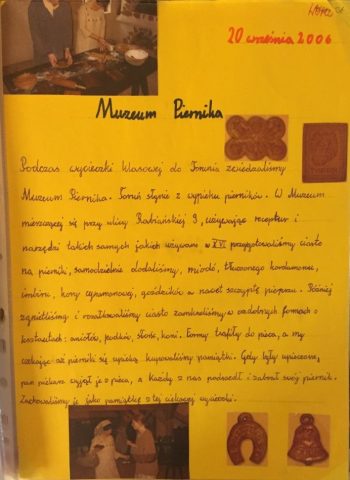 20 września 2006
Muzeum Piernika
Podczas wycieczki klasowej do Torunia zwiedzaliśmy
Muzeum Piernika. Toruń słynie z wypieku pierników. W Muzeum
mieszczącej się przy ulicy Rabiańskiej 9, używając receptur i
narzędzi takich samych jakich używano w XVI przygotowaliśmy ciasto
na pierniki, samodzielnie dodaliśmy, miodu, tłuczonego kardamonu,
imbiru, kory cynamonowej, goździków a nawet szczyptę pieprzu. Później
zgnietliśmy i rozwałkowaliśmy ciasto zamknęliśmy w ozdobnych formach o
kształtach: aniołów, podków, słoni, koni. Formy trafiły do pieca, a my
czekając aż pierniki się upieką kupowaliśmy pamiątki. Gdy były upieczone,
pan piekarz wyjął je z pieca, a każdy z nas podszedł i zabrał swój piernik.
Zachowaliśmy je jako pamiątkę z tej ciekawej wycieczki.